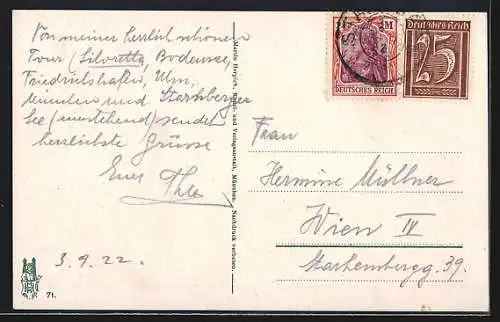 Von meiner herrlich schönen
Tour (Silvretta, Bodensee,
Friedrichshafen, Ulm,
München und Starnberger
See (umstehend) sendet
herzlichste Grüsse
Euer
3.9.22.
71.
Martin Herpich, Kunst- und Verlagsanstalt, München. Nachdruck verboten.
M
DEUTSCHES REICH
Deutsches Reich
25
Frau
Hermine Müllner
Wien IV
Starhembergg. 39.